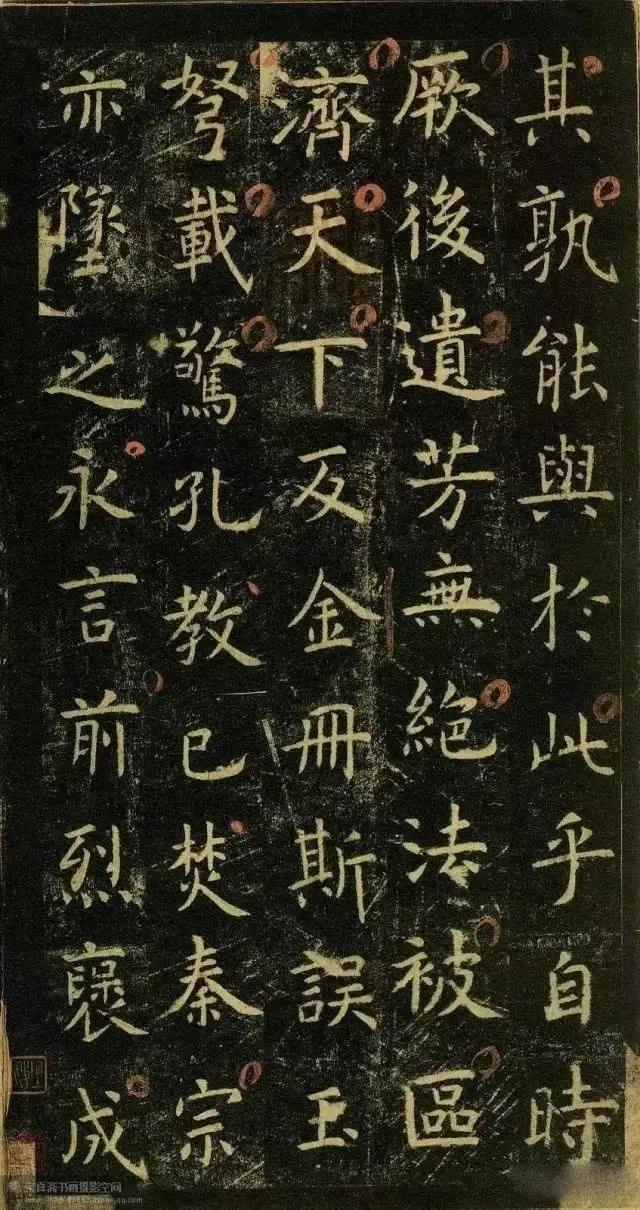 其孰能與於此乎自時
厥後遺芳無絕法被區
濟天下及金冊斯誤玉
弩載驚孔教已焚秦宗
亦墜之永言前烈襃成